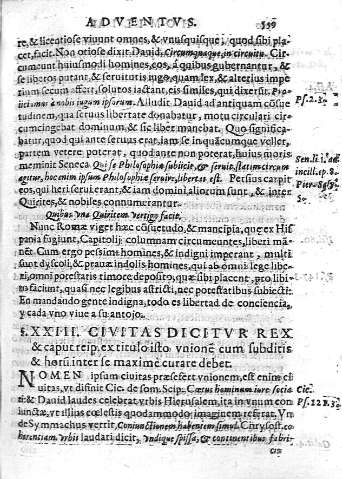 ADVENTVS. 539
re, & licentiose viuunt omnes, & vnusquisque, quod sibi pla-
cet, facit. Non otiose dixit Dauid, Circumquaque, in circuitu. Cir-
cumeunt huiusmodi homines, eos, à quibus gubernantur, & à
se libertos putant, & seruitutis iugo, quam lex, & alterius impe-
rium secum affert, solutos iactant, eis similes, qui dixerunt. Pro-
iiciamus à nobis iugum ipsorum. Alludit Dauid ad antiquam cõsue
tudinem, qua seruus libertate donabatur, motu circulari cir-
cumcingebat dominum, & sic liber manebat. Quo significa-
batur, quod qui ante seruus erat, iam se in quacumque vellet,
partem vetere poterat, quod ante non poterat, huius moris
meminit Seneca
agitur, hoc enim ipsum Philosophiæ seruire, libertas est. Persius carpit
eos, qui heri seruierant, & iam domini aliorum sunt, & inter
Quirites, & nobiles connumerantur.
Quibus vna Quiritem vertigo facit.
Nunc Romæ viget hæc cõsuetudo, & mancipia, quæ ex His
pania fugiunt, Capitolij columnam circumeuntes, liberi ma-
nẽt. Cum ergo pessimi homines, & indigni imperant, multi
sunt dyscoli, & prauæ indolis homines, qui ab omni lege libe-
ri, omni potestatis timore deposito, quæ sibi placent, pro libi-
tu faciunt, quasi nec legibus astricti, nec potestatibus subiecti:
En mandando gente indigna, todo es libertad de conciencia,
y cada vno viue a su antojo.
§. XXIII. CIVITAS DICITVR REX
& caput reip. ex titulo isto vnionẽ cum subditis
& horũ inter se maximè curare debet.
NOMEN ipsum ciuitas præsefert vnionem, est enim ci
uitas, vt disinit Cic. de somn. Scip. Cœtus hominum iure socia
ti: & Dauid laudes celebrat vrbis Hierusalem, ita in vnum con
iunctæ, vt illius cœlestis quodammodo imaginem referat. Vn
de Symmachus vertit, Coniunctionem habentem simul. Chrysost. co
hærentiam vrbis laudari dicit, vndique spissa, & continentibus fabri-
cis
Ps. 2. 3.
Sen. li. 1. ad
incill. ep. 8.
Cic.
Ps. 121. 3.